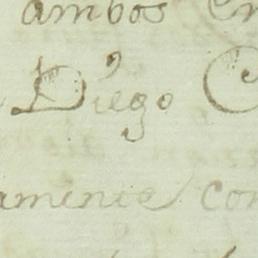 ambos en
Diego C
amente con